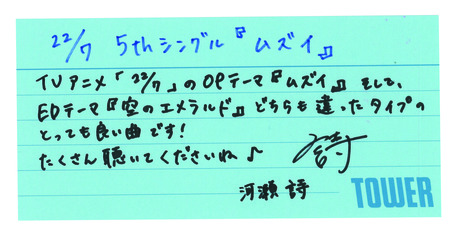 22/7 5thシングル『ムズイ』
TVアニメ「22/7」のOPテーマ『ムズイ』そして、
EDテーマ『空のエメラルド』どちらも違ったタイプの
とっても良い曲です!
たくさん聴いてくださいね♪
詩
河瀬 詩
TOWER